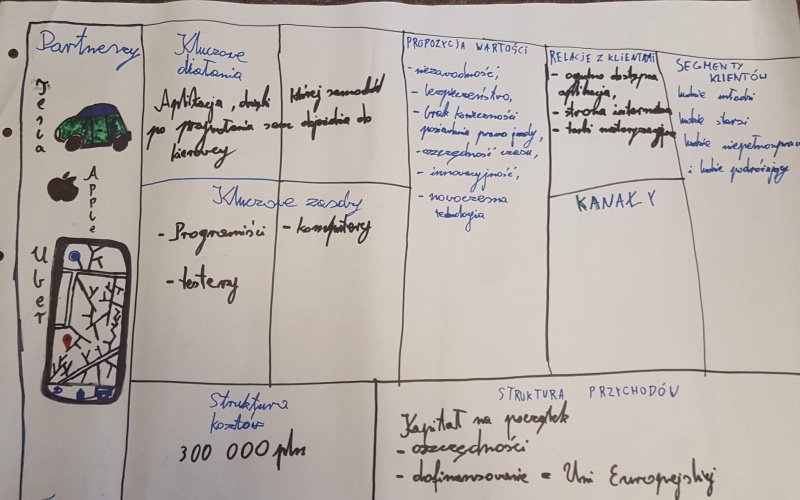 Partnerzy
Tesla
Apple
Uber
Kluczowe
działania
Aplikacja, dzięki której samochód
po przywołaniu sam dojeżdża do
kierowcy
Kluczowe zasoby
- Programiści
- testerzy
- komputery
PROPOZYCJA WARTOŚCI
- niezawodność,
- bezpieczeństwo,
- brak konieczności
posiadania prawa jazdy,
- oszczędność czasu,
- innowacyjność,
- nowoczesna
technologia
RELACJE Z KLIENTAMI
- ogólno dostępna
aplikacja,
- strona internetowa
- targi motoryzacyjne
KANAŁY
SEGMENTY
KLIENTÓW
ludzie młodzi
ludzie starsi
ludzie niepełnospraw
i ludzie podróżujący
Struktura
kosztów
300 000 pln
STRUKTURA PRZYCHODÓW
Kapitał na początek
- oszczędności
- dofinansowanie z Unii Europejskiej